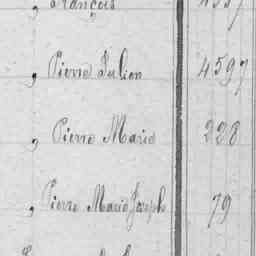 , François
, Pierre Julien 4597
, Pierre Marie 228
, Pierre Marie Joseph 79